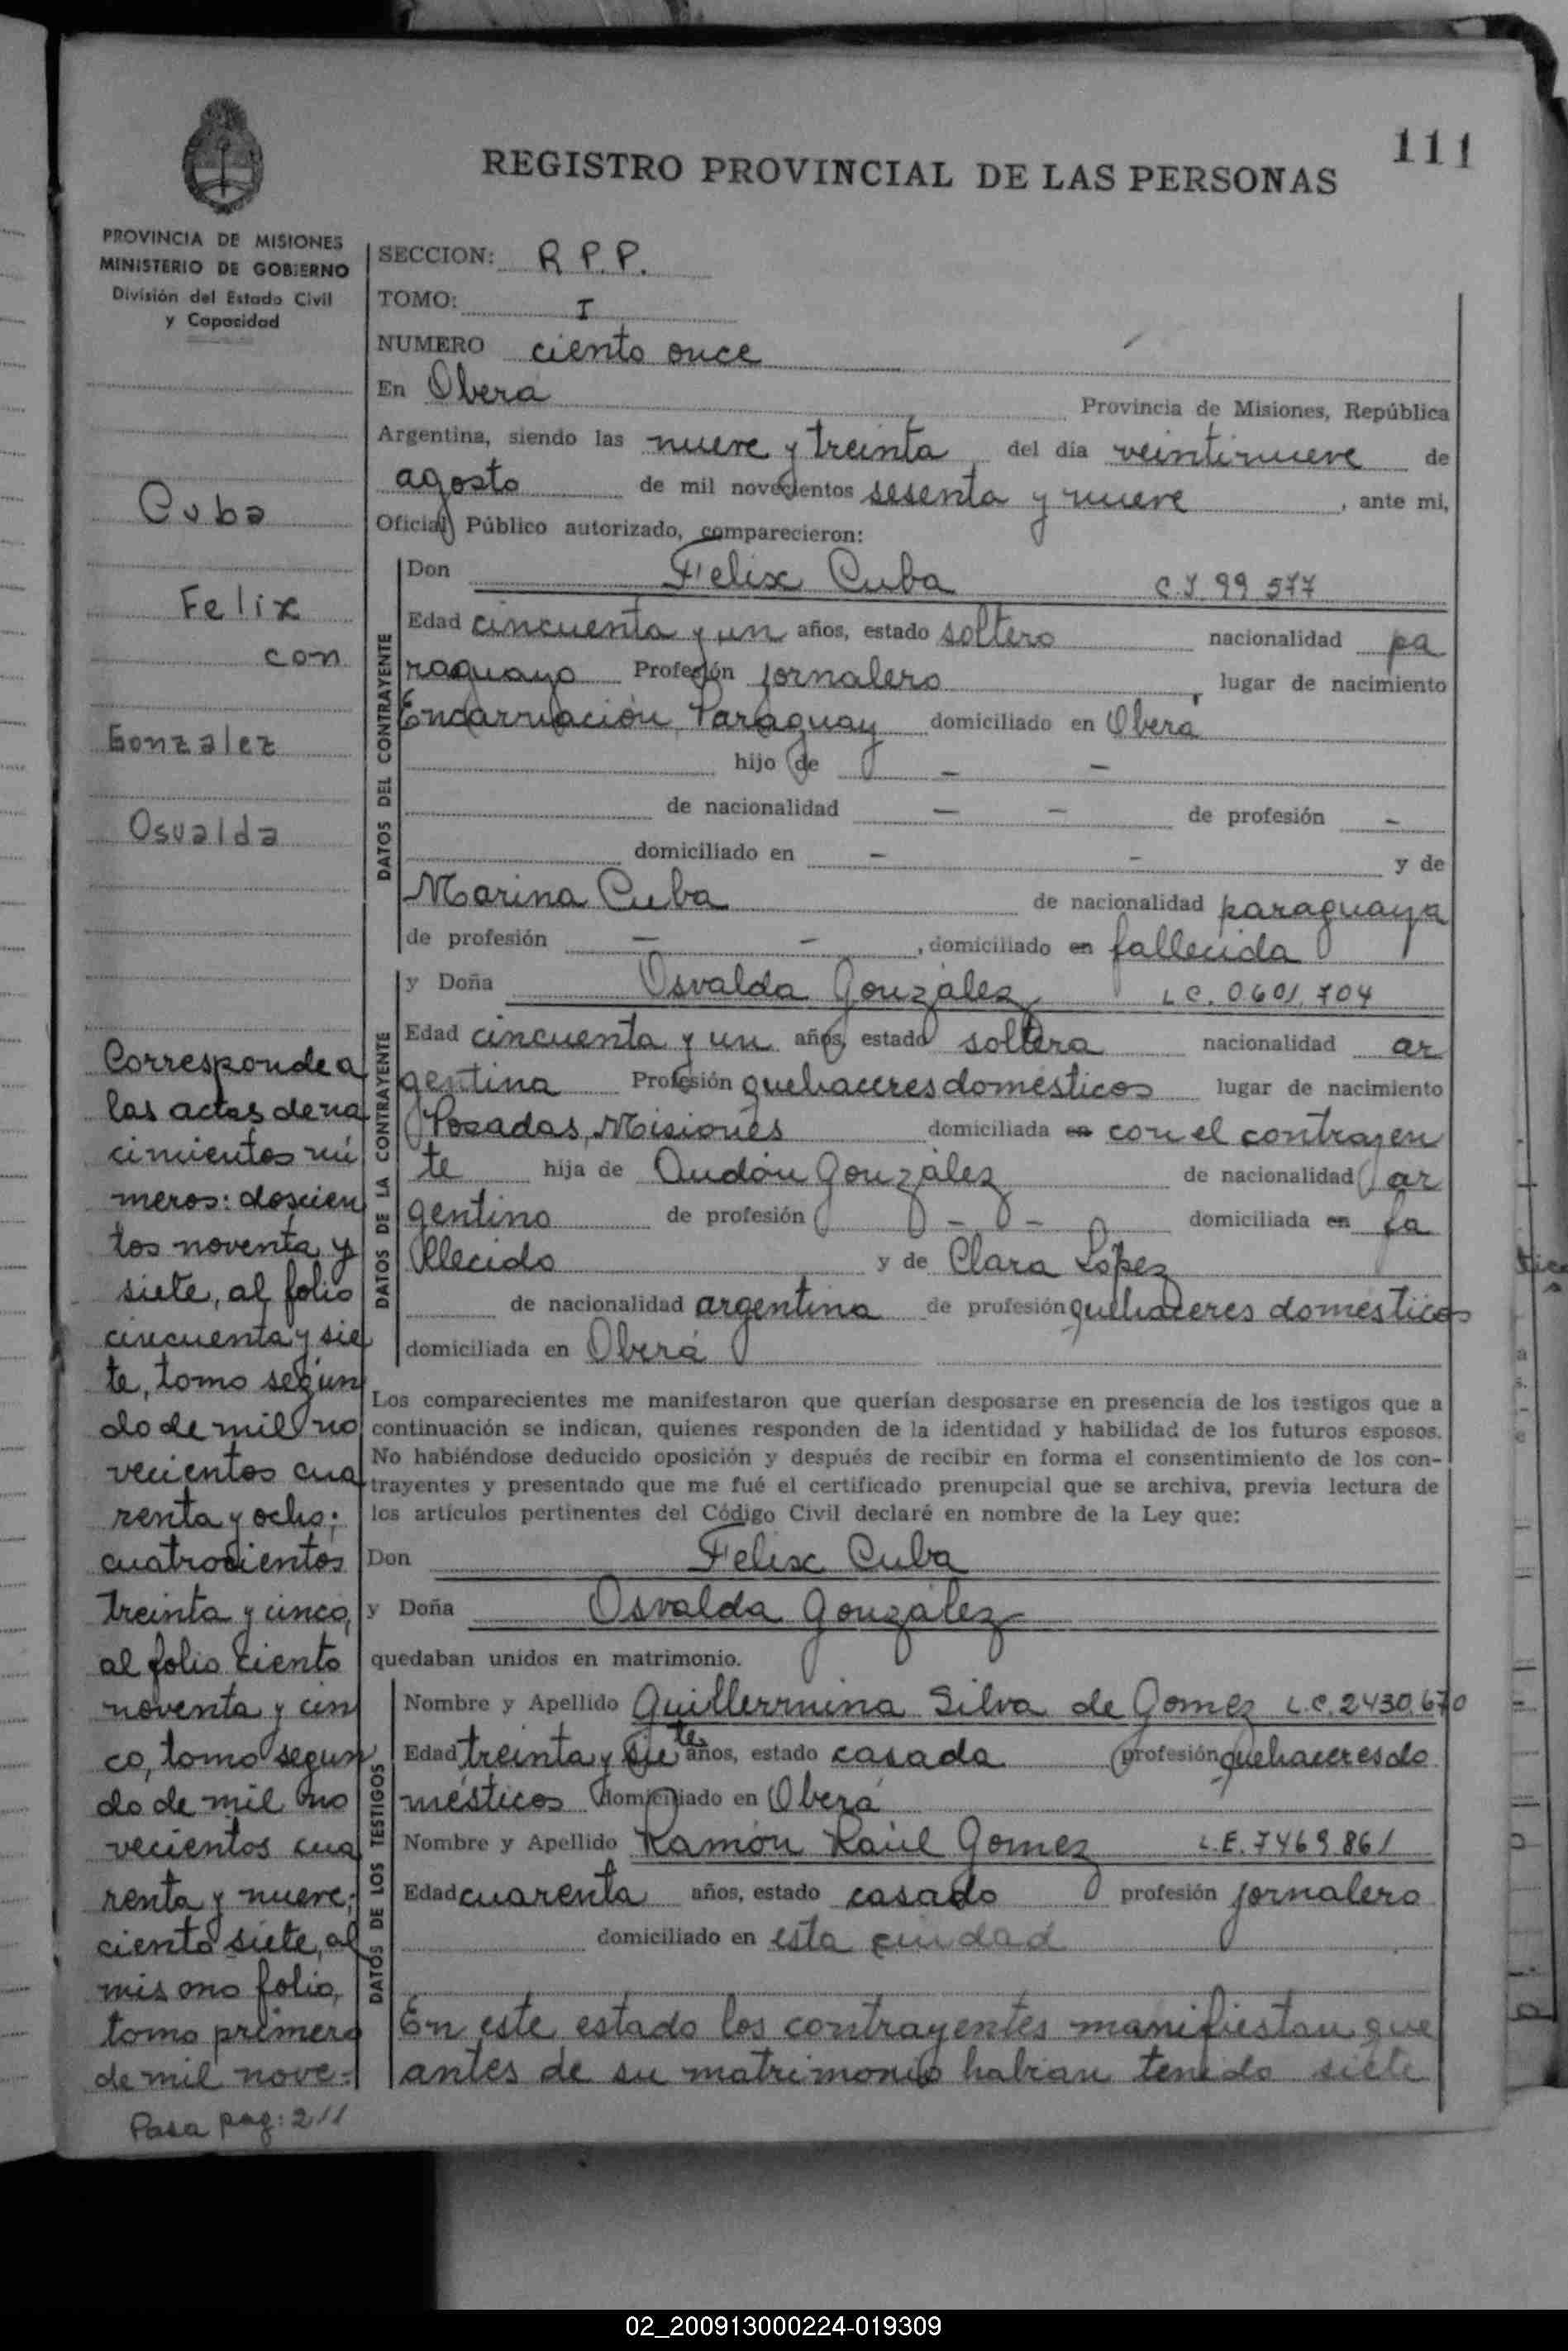 111
REGISTRO PROVINCIAL DE LAS PERSONAS
PROVINCIA DE MISIONES
MINISTERIO DE GOBIERNO
División del Estado Civil
y Capacidad
Cuba
Felix
con
Gonzalez
Osvalda
Corresponde a
las actas de na
cimientos nú
meros: doscien
tos noventa y
siete, al folio
cincuenta y sie
te, tomo segun
do de mil no
vecientos cua
renta y ocho;
cuatrocientos
treinta y cinco,
al folio ciento
noventa y cin
co, tomo segun
do de mil no
vecientos cua
renta y nueve;
ciento siete, al
mismo folio,
tomo primero
de mil nove-
Pasa pag: 211
SECCION: R.P.P.
TOMO: I
NUMERO ciento once
En Oberá Provincia de Misiones, República
Argentina, siendo las nueve y treinta del día veintinueve de
agosto de mil novecientos sesenta y nueve, ante mi,
Oficial Público autorizado, comparecieron:
DATOS DEL CONTRAYENTE
Don Felix Cuba C.I. 99 577
Edad cincuenta y un años, estado soltero nacionalidad pa
raguayo Profesión jornalero, lugar de nacimiento
Encarnación, Paraguay domiciliado en Oberá
hijo de — —
de nacionalidad — — de profesión —
domiciliado en — — y de
Marina Cuba de nacionalidad paraguaya
de profesión — —, domiciliado en fallecida
DATOS DE LA CONTRAYENTE
y Doña Osvalda González L.C. 0601,704
Edad cincuenta y un años, estado soltera nacionalidad ar
gentina Profesión quehaceres domésticos lugar de nacimiento
Posadas, Misiones domiciliada en con el contrayen
te hija de Audón González de nacionalidad ar
gentino de profesión — — domiciliada en fa
llecido y de Clara López
de nacionalidad argentina de profesión quehaceres domésticos
domiciliada en Oberá
Los comparecientes me manifestaron que querían desposarse en presencia de los testigos que a
continuación se indican, quienes responden de la identidad y habilidad de los futuros esposos.
No habiéndose deducido oposición y después de recibir en forma el consentimiento de los con-
trayentes y presentado que me fué el certificado prenupcial que se archiva, previa lectura de
los artículos pertinentes del Código Civil declaré en nombre de la Ley que:
Don Felix Cuba
y Doña Osvalda González
quedaban unidos en matrimonio.
DATOS DE LOS TESTIGOS
Nombre y Apellido Guillermina Silva de Gomez L.C. 2430.670
Edad treinta y siete años, estado casada profesión quehaceres do
mésticos domiciliado en Oberá
Nombre y Apellido Ramón Raúl Gomez L.E. 7469861
Edad cuarenta años, estado casado profesión jornalero
domiciliado en esta ciudad
En este estado los contrayentes manifiestan que
antes de su matrimonio habian tenido siete
02_200913000224-019309